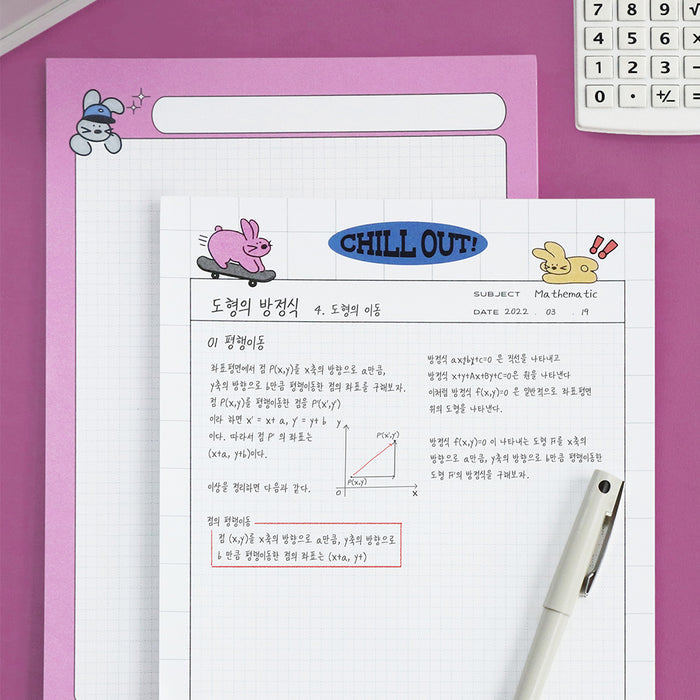 7 8 9 √
4 5 6 ×
1 2 3 −
0 · +/− =
CHILL OUT!
도형의 방정식 4. 도형의 이동
SUBJECT Mathematic
DATE 2022 . 03 . 19
01 평행이동
좌표평면에서 점 P(x,y)를 x축의 방향으로 a만큼,
y축의 방향으로 b만큼 평행이동한 점의 좌표를 구해보자.
점 P(x,y)를 평행이동한 점을 P'(x',y')
이라 하면 x' = x+ a, y' = y+ b
이다. 따라서 점 P' 의 좌표는
(x+a, y+b)이다.
이상을 정리하면 다음과 같다.
y
P'(x',y')
P(x,y)
0 x
점의 평행이동
점 (x,y)을 x축의 방향으로 a만큼, y축의 방향으로
b 만큼 평행이동한 점의 좌표는 (x+a, y+)
방정식 ax+by+c=0 은 직선을 나타내고
방정식 x+y+Ax+By+C=0은 원을 나타낸다
이처럼 방정식 f(x,y)=0 은 일반적으로 좌표평면
위의 도형을 나타낸다.
방정식 f(x,y)=0 이 나타내는 도형 F를 x축의
방향으로 a만큼, y축의 방향으로 b만큼 평행이동한
도형 F'의 방정식을 구해보자.